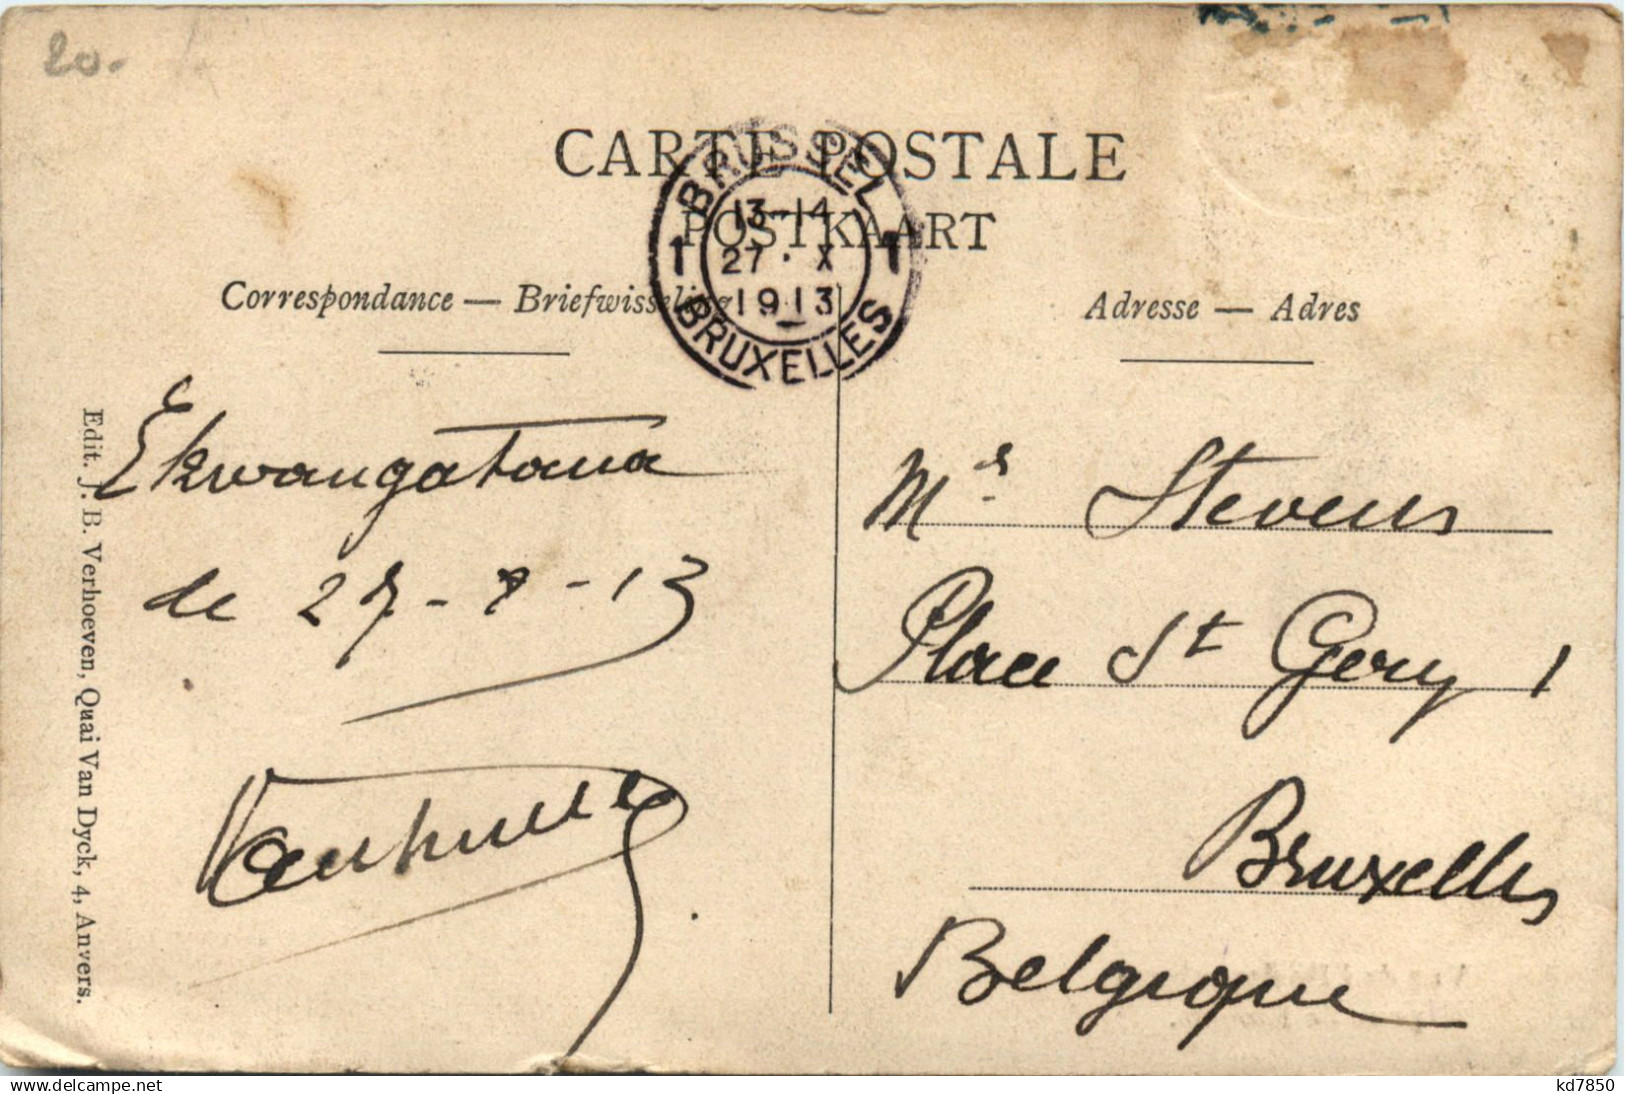 20.
CARTE POSTALE
POSTKAART
BRUSSEL
13-14
1 27 · X 1
1913
BRUXELLES
Correspondance — Briefwisseling
Adresse — Adres
Ekwangatana
de 27-8-13
Edit. J. B. Verhoeven, Quai Van Dyck, 4, Anvers.
Mr Stevens
Place St Gery 1
Bruxelles
Belgique
kd7850